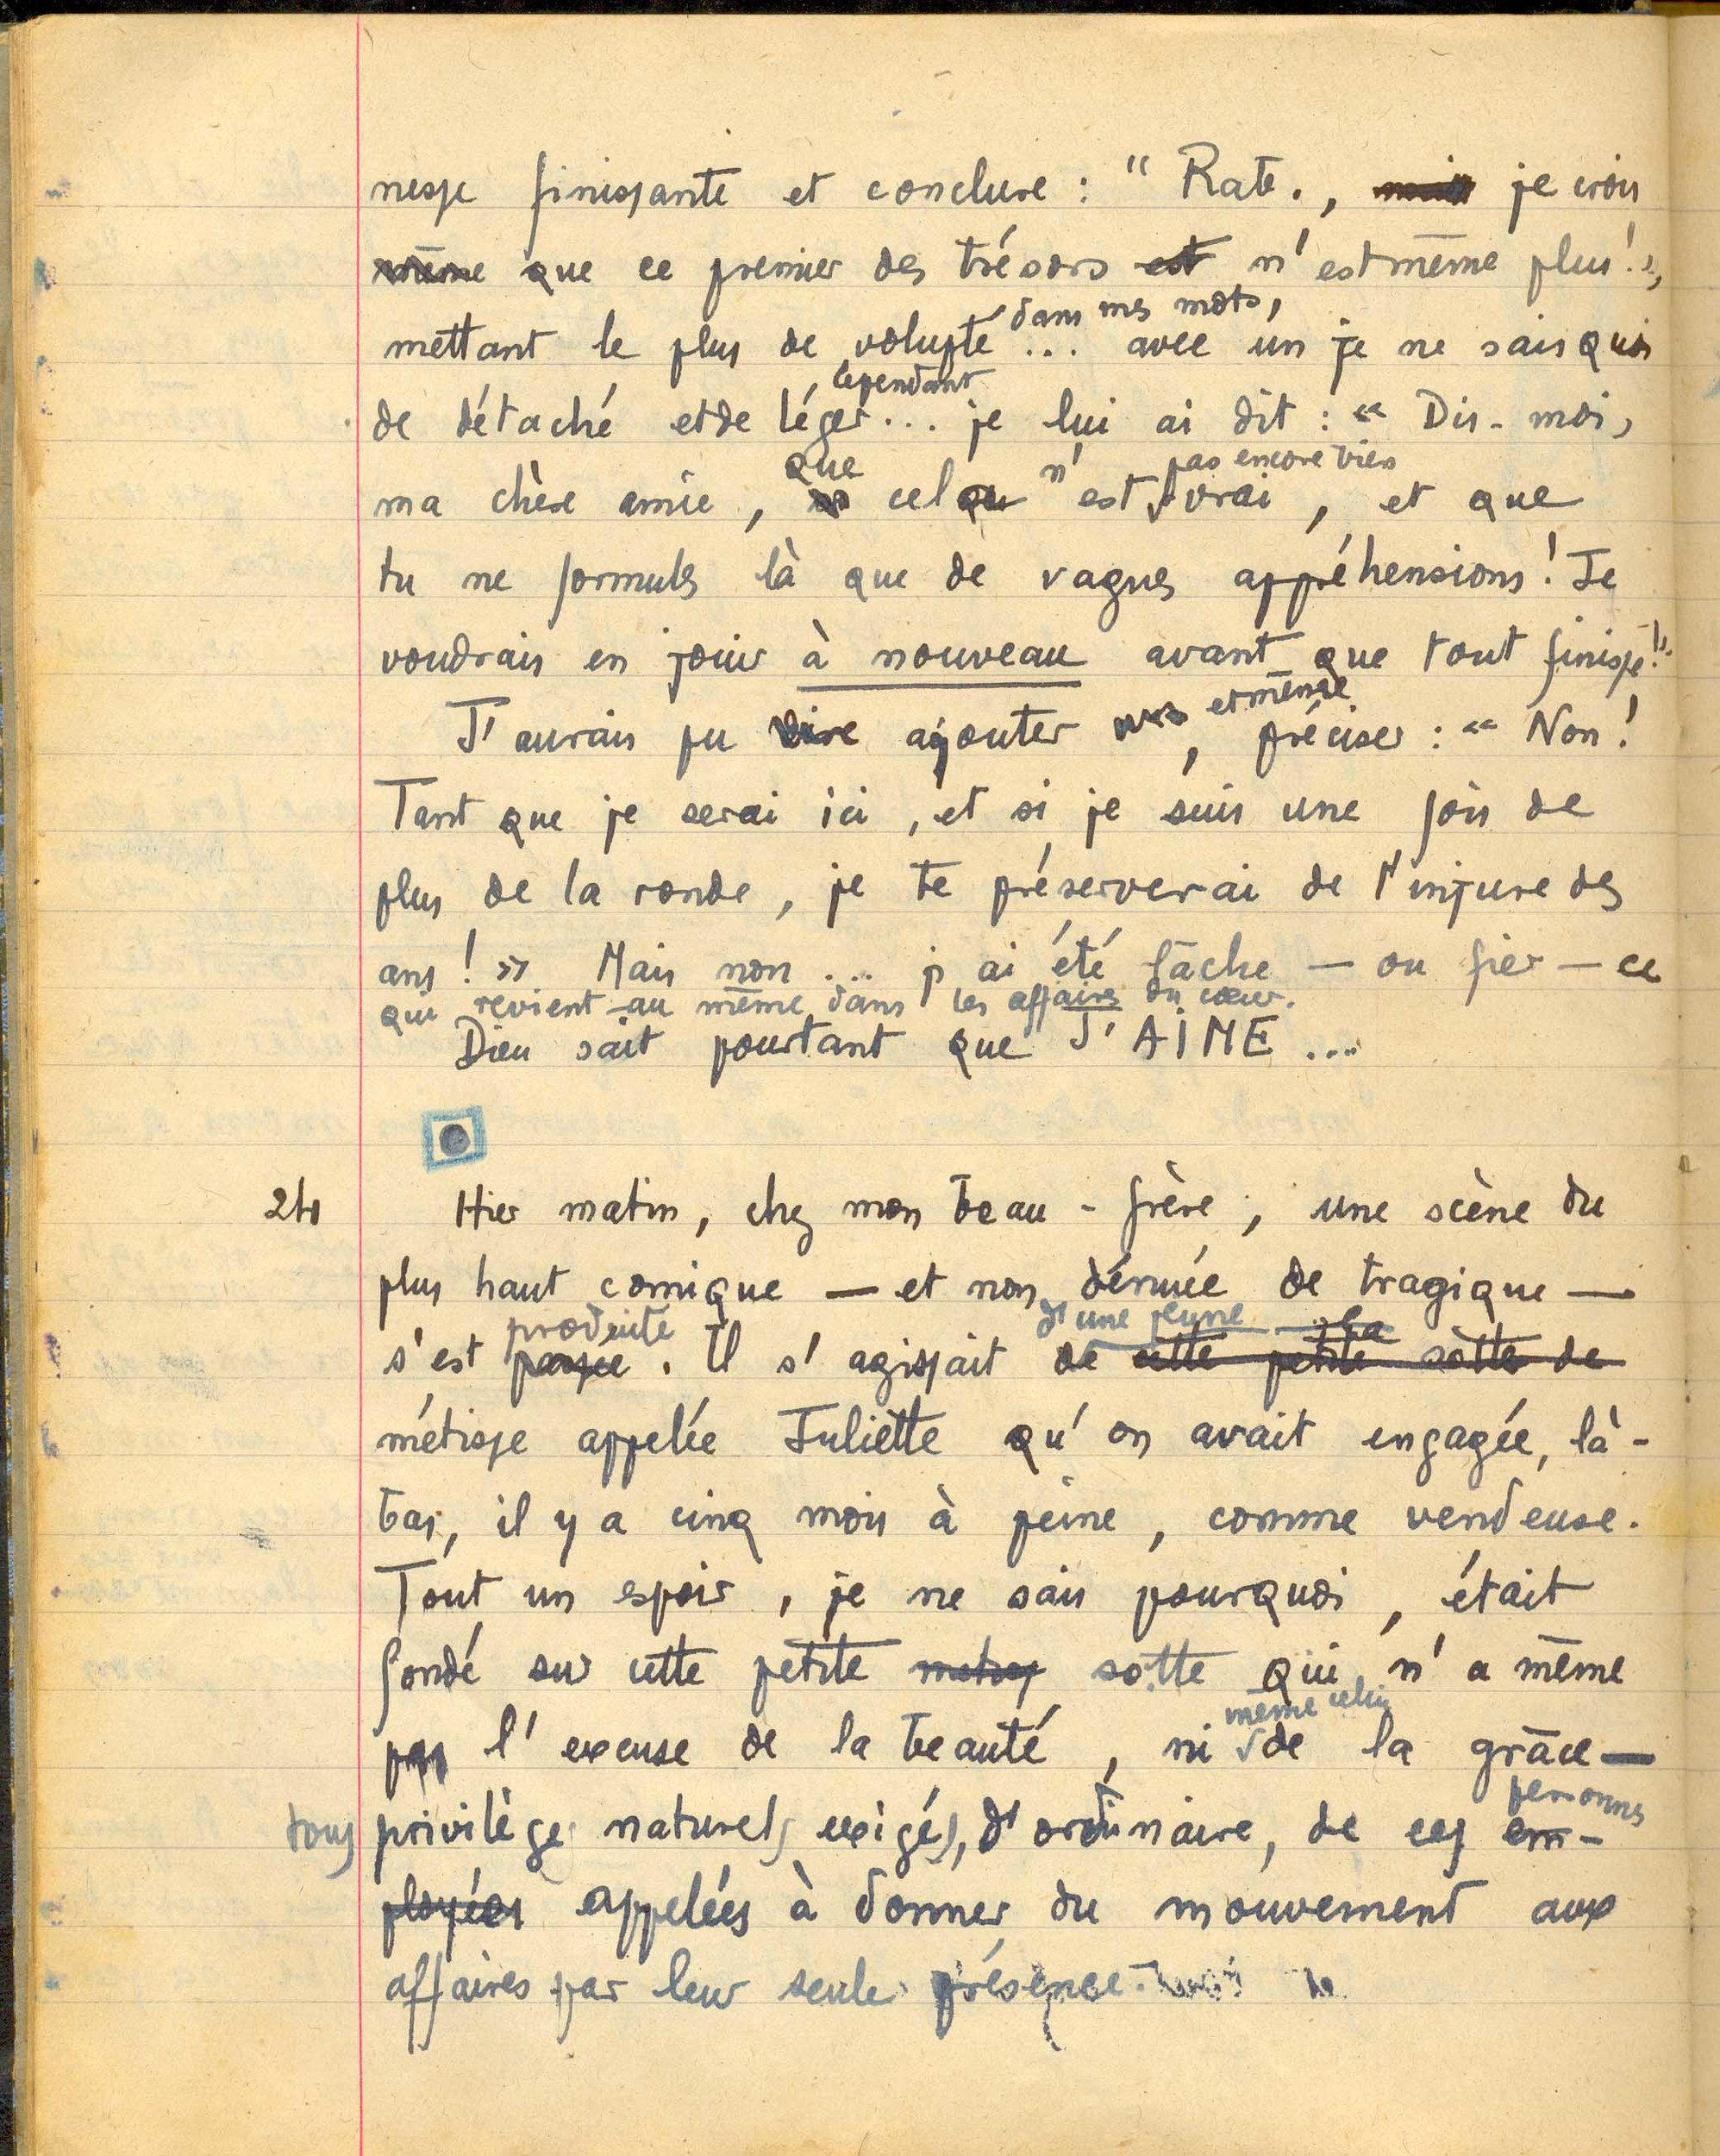 nesse finissante et conclure : " Rate., mais je crois
même que ce premier des trésors est n'est même plus ! ",
mettant le plus de volupté dans mes mots, ... avec un je ne sais quoi
de détaché et de léger ... cependant je lui ai dit : « Dis-moi,
ma chère amie, que cela n'est pas encore bien vrai, et que
tu ne formules là que de vagues appréhensions ! Je
voudrais en jouir à nouveau avant que tout finisse ! "
J'aurais pu dire ajouter, et même préciser : « Non !
Tant que je serai ici, et si je suis une fois de
plus de la ronde, je te préserverai de l'injure des
ans ! » Mais non ... j'ai été lâche — ou fier — ce
qui revient au même dans les affaires du cœur.
Dieu sait pourtant que J'AIME ....
24 Hier matin, chez mon beau-frère, une scène du
plus haut comique — et non dénuée de tragique —
s'est passée produite. Il s'agissait de d'une jeune cette petite sotte de
métisse appelée Juliette qu'on avait engagée, là-
bas, il y a cinq mois à peine, comme vendeuse.
Tout un espoir, je ne sais pourquoi, était
fondé sur cette petite sotte qui n'a même
pas l'excuse de la beauté, ni même celui de la grâce —
tous privilèges naturels exigés, d'ordinaire, de ces personnes em-
ployées appelées à donner du mouvement aux
affaires par leur seule présence.